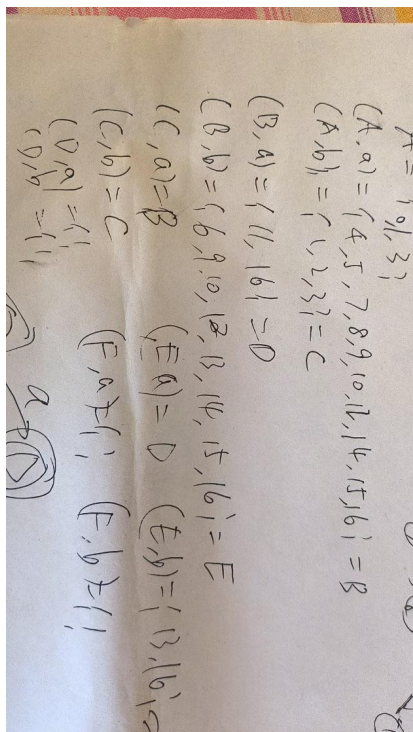 A = {0,1,3}
(A,a) = {4,5,7,8,9,10,12,14,15,16} = B
(A,b) = {1,2,3} = C
(B,a) = {11,16} = D
(B,b) = {6,9,10,12,13,14,15,16} = E
(C,a) = B (E,a) = D (E,b) = {13,16} =
(C,b) = C (F,a) = {} (F,b) = {}
(D,a) = {}
(D,b) = {}
a